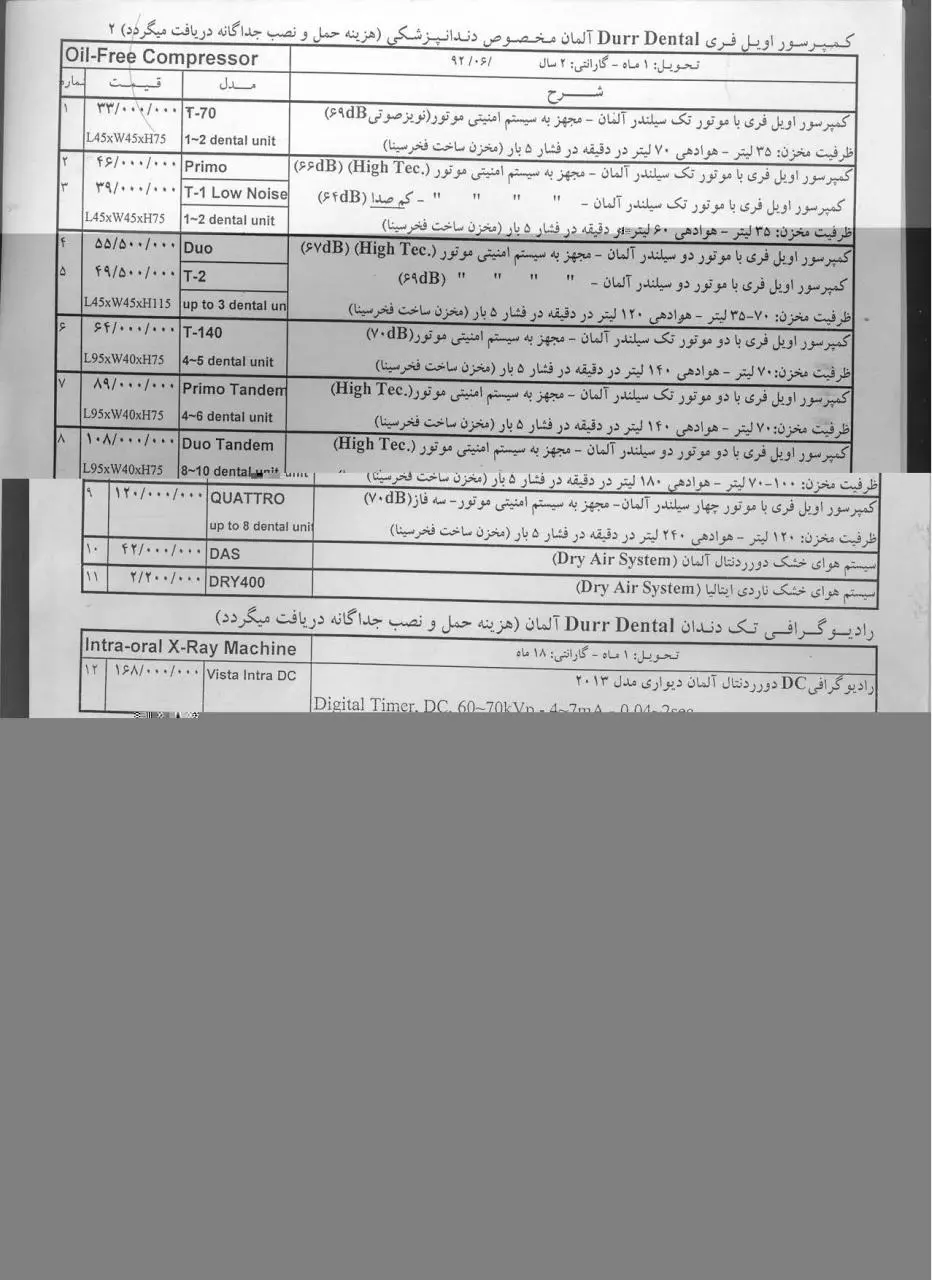 کمپرسور اویل فری Durr Dental آلمان مخصوص دندانپزشکی (هزینه حمل و نصب جداگانه دریافت میگردد) ۲
Oil-Free Compressor
تحویل: ۱ ماه - گارانتی: ۲ سال ۹۲/۰۶/
شرح
مدل
قیمت
۱
۳۳/۰۰۰/۰۰۰
T-70
کمپرسور اویل فری با موتور تک سیلندر آلمان - مجهز به سیستم امنیتی موتور(نویزصوتی ۶۹dB)
L45xW45xH75
1~2 dental unit
ظرفیت مخزن: ۳۵ لیتر - هوادهی ۷۰ لیتر در دقیقه در فشار ۵ بار (مخزن ساخت فخرسینا)
۲
۴۶/۰۰۰/۰۰۰
Primo
کمپرسور اویل فری با موتور تک سیلندر آلمان - مجهز به سیستم امنیتی موتور (High Tec.) (۶۶dB)
۳
۳۹/۰۰۰/۰۰۰
T-1 Low Noise
کمپرسور اویل فری با موتور تک سیلندر آلمان - " " " " - کم صدا (۶۴dB)
L45xW45xH75
1~2 dental unit
ظرفیت مخزن: ۳۵ لیتر - هوادهی ۶۰ لیتر در دقیقه در فشار ۵ بار (مخزن ساخت فخرسینا)
۴
۵۵/۵۰۰/۰۰۰
Duo
کمپرسور اویل فری با موتور دو سیلندر آلمان - مجهز به سیستم امنیتی موتور (High Tec.) (۶۷dB)
۵
۴۹/۵۰۰/۰۰۰
T-2
کمپرسور اویل فری با موتور دو سیلندر آلمان - " " " " (۶۹dB)
L45xW45xH115
up to 3 dental un
ظرفیت مخزن: ۷۰-۳۵ لیتر - هوادهی ۱۲۰ لیتر در دقیقه در فشار ۵ بار (مخزن ساخت فخرسینا)
۶
۶۴/۰۰۰/۰۰۰
T-140
کمپرسور اویل فری با دو موتور تک سیلندر آلمان - مجهز به سیستم امنیتی موتور(۷۰dB)
L95xW40xH75
4~5 dental unit
ظرفیت مخزن: ۷۰ لیتر - هوادهی ۱۴۰ لیتر در دقیقه در فشار ۵ بار (مخزن ساخت فخرسینا)
۷
۸۹/۰۰۰/۰۰۰
Primo Tandem
کمپرسور اویل فری با دو موتور تک سیلندر آلمان - مجهز به سیستم امنیتی موتور(High Tec.)
L95xW40xH75
4~6 dental unit
ظرفیت مخزن: ۷۰ لیتر - هوادهی ۱۴۰ لیتر در دقیقه در فشار ۵ بار (مخزن ساخت فخرسینا)
۸
۱۰۸/۰۰۰/۰۰۰
Duo Tandem
کمپرسور اویل فری با دو موتور دو سیلندر آلمان - مجهز به سیستم امنیتی موتور (High Tec.)
L95xW40xH75
8~10 dental unit
ظرفیت مخزن: ۱۰۰-۷۰ لیتر - هوادهی ۱۸۰ لیتر در دقیقه در فشار ۵ بار (مخزن ساخت فخرسینا)
۹
۱۲۰/۰۰۰/۰۰۰
QUATTRO
کمپرسور اویل فری با موتور چهار سیلندر آلمان- مجهز به سیستم امنیتی موتور- سه فاز(۷۰dB)
up to 8 dental unit
ظرفیت مخزن: ۱۲۰ لیتر - هوادهی ۲۴۰ لیتر در دقیقه در فشار ۵ بار (مخزن ساخت فخرسینا)
۱۰
۴۲/۰۰۰/۰۰۰
DAS
سیستم هوای خشک دورردنتال آلمان (Dry Air System)
۱۱
۲/۲۰۰/۰۰۰
DRY400
سیستم هوای خشک ناردی ایتالیا (Dry Air System)
رادیوگرافی تک دندان Durr Dental آلمان (هزینه حمل و نصب جداگانه دریافت میگردد)
Intra-oral X-Ray Machine
تحویل: ۱ ماه - گارانتی: ۱۸ ماه
۱۲
۱۶۸/۰۰۰/۰۰۰
Vista Intra DC
رادیوگرافی DC دورردنتال آلمان دیواری مدل ۲۰۱۳
Digital Timer, DC, 60~70kVp - 4~7mA - 0.04~2sec